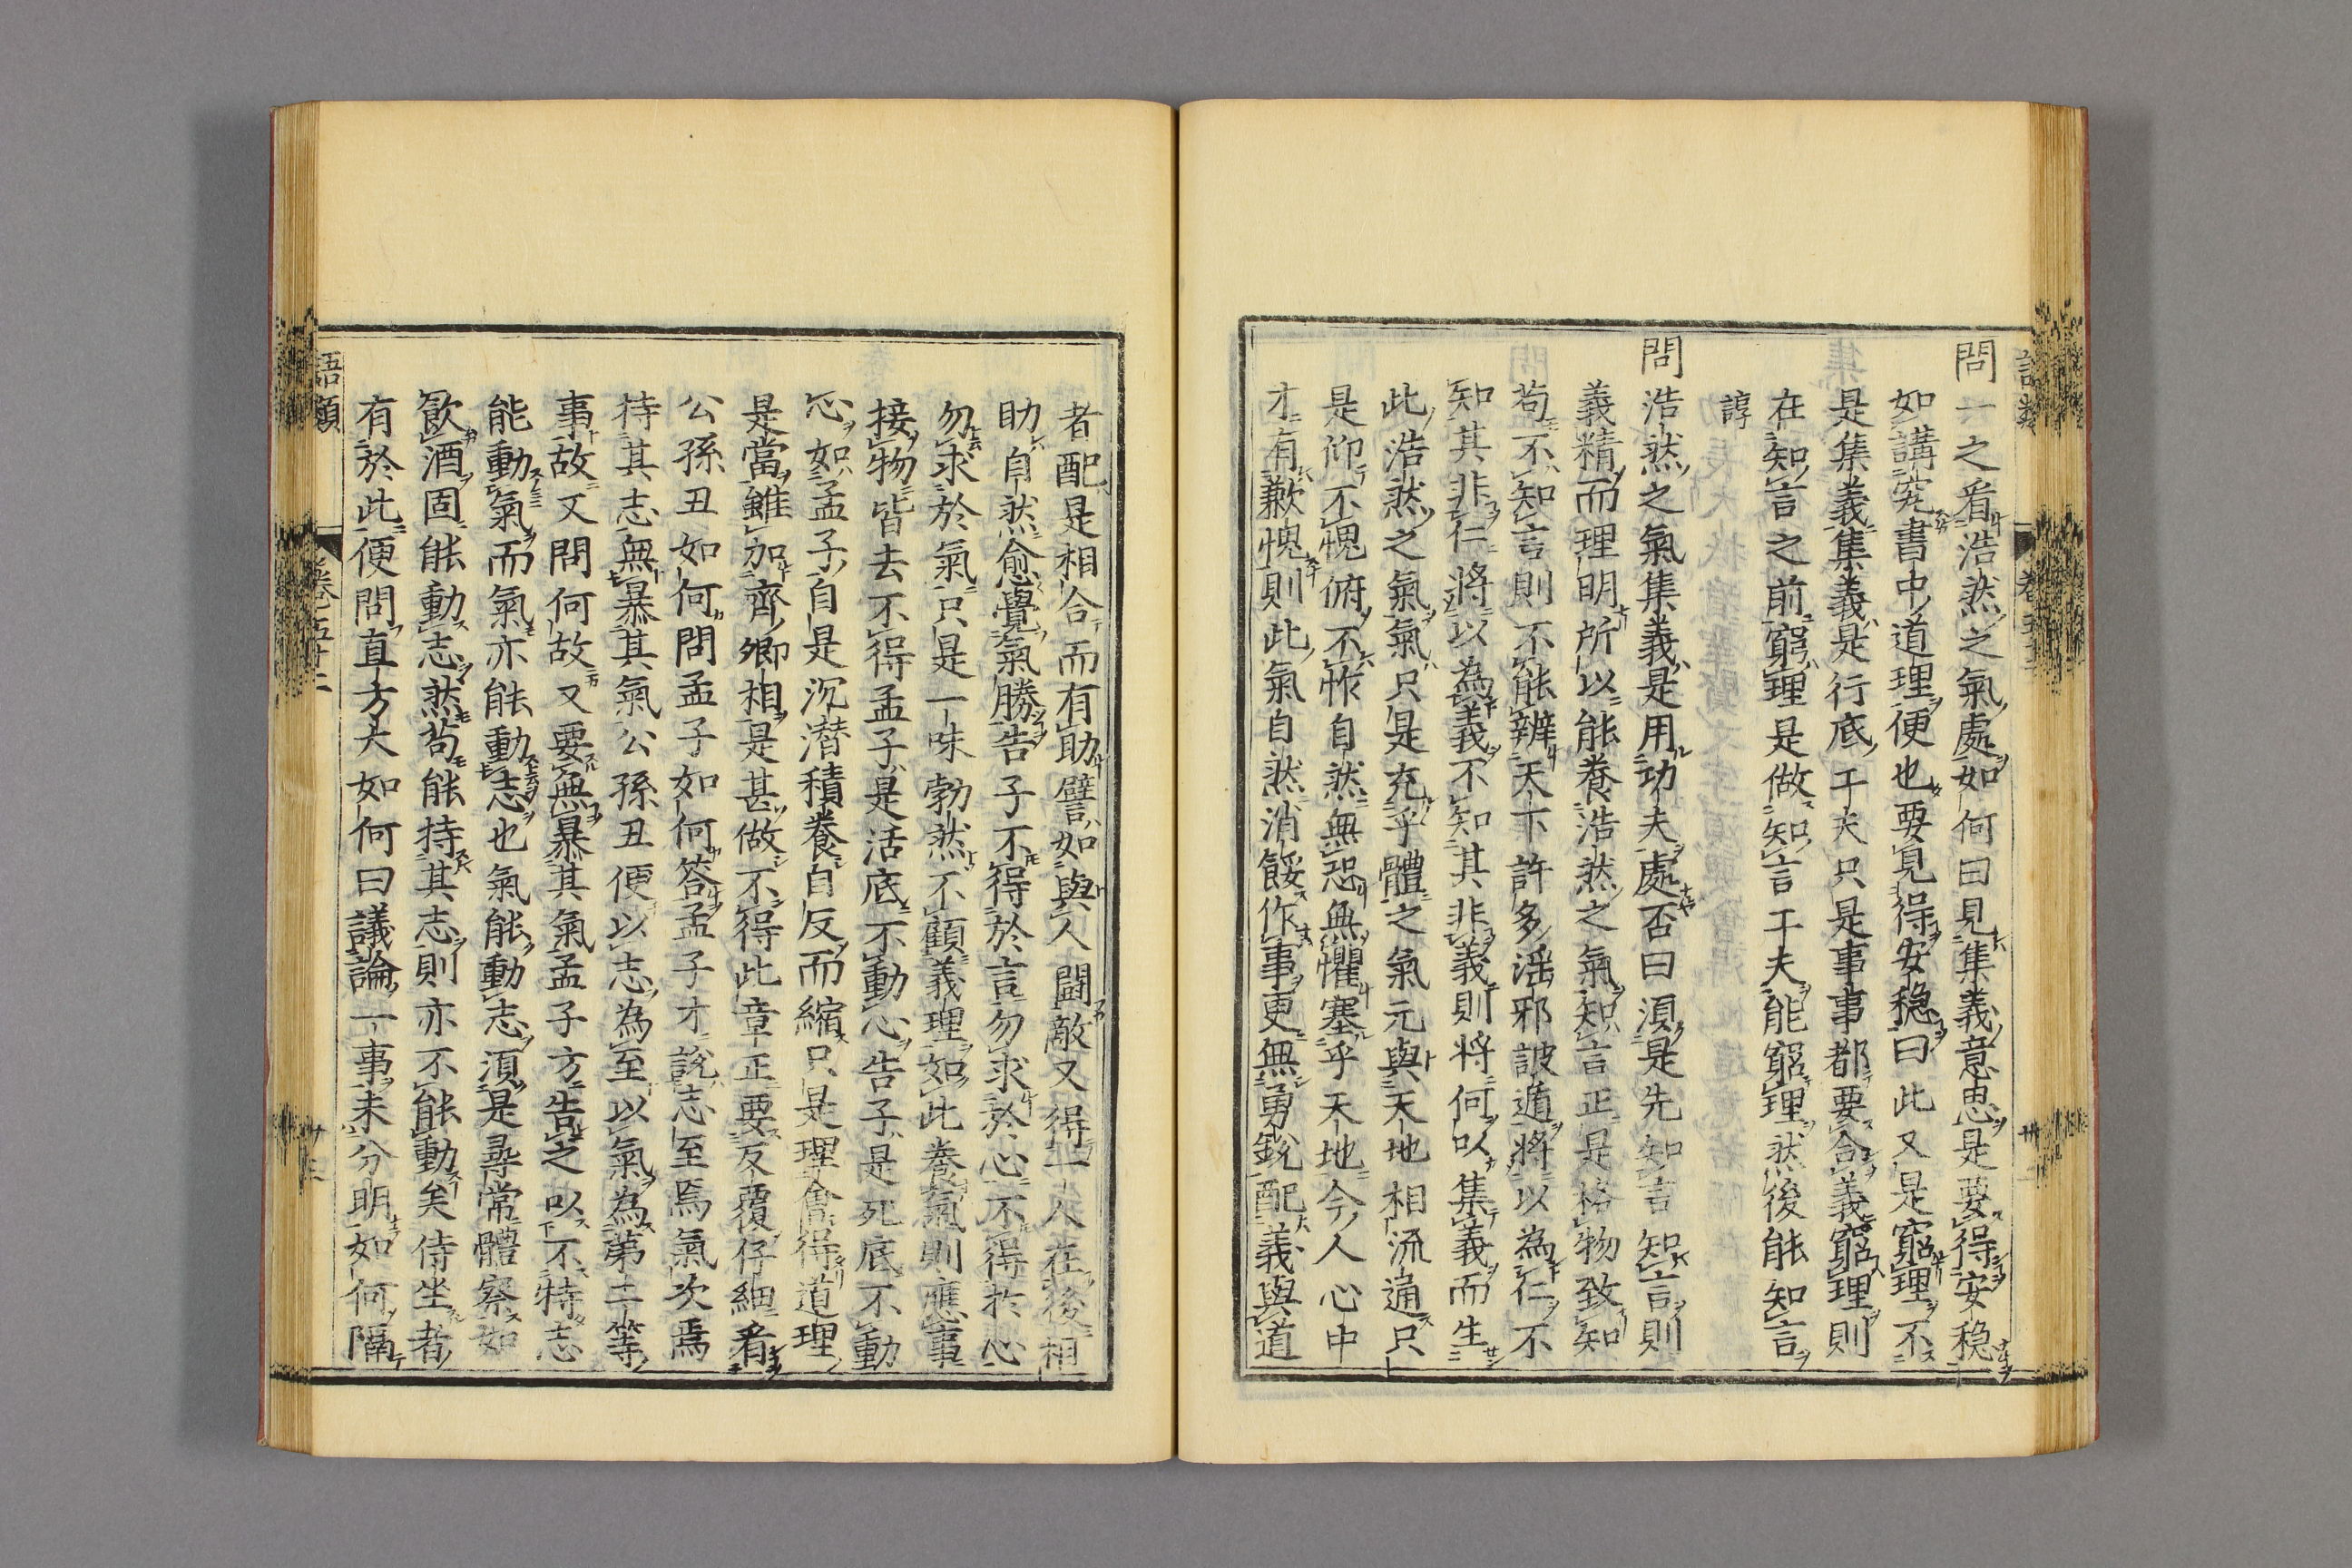 問一之看浩然之氣處如何曰見集義意思是要得安穩
如講究書中道理便也要見得安穩曰此又是窮理不
是集義集義是行底工夫只是事事都要合義窮理則
在知言之前窮理是做知言工夫能窮理然後能知言
諄
問浩然之氣集義是用功夫處否曰須是先知言知言則
義精而理明所以能養浩然之氣知言正是格物致知
苟不知言則不能辨天下許多淫邪詖遁將以為仁不
知其非仁將以為義不知其非義則將何以集義而生
此浩然之氣氣只是充乎體之氣元與天地相流通只
是仰不愧俯不怍自然無恐無懼塞乎天地今人心中
才有歉愧則此氣自然消餒作事更無勇銳配義與道
者配是相合而有助譬如與人鬪敵又得一人在後相
助自然愈覺氣勝告子不得於言勿求於心不得於心
勿求於氣只是一味勃然不顧義理如此養氣則應事
接物皆去不得孟子是活底不動心告子是死底不動
心如孟子自是沉潛積養自反而縮只是理會得道理
是當雖加齊卿相是甚做不得此章正要反覆仔細看
公孫丑如何問孟子如何答孟子才說志至焉氣次焉
持其志無暴其氣公孫丑便以志為至以氣為第二等
事故又問何故又要無暴其氣孟子方告之以不特志
能動氣而氣亦能動志也氣能動志須是尋常體察如
飲酒固能動志然苟能持其志則亦不能動矣侍坐者
有於此便問直方大如何曰議論一事未分明如何隔
語類
卷五十二